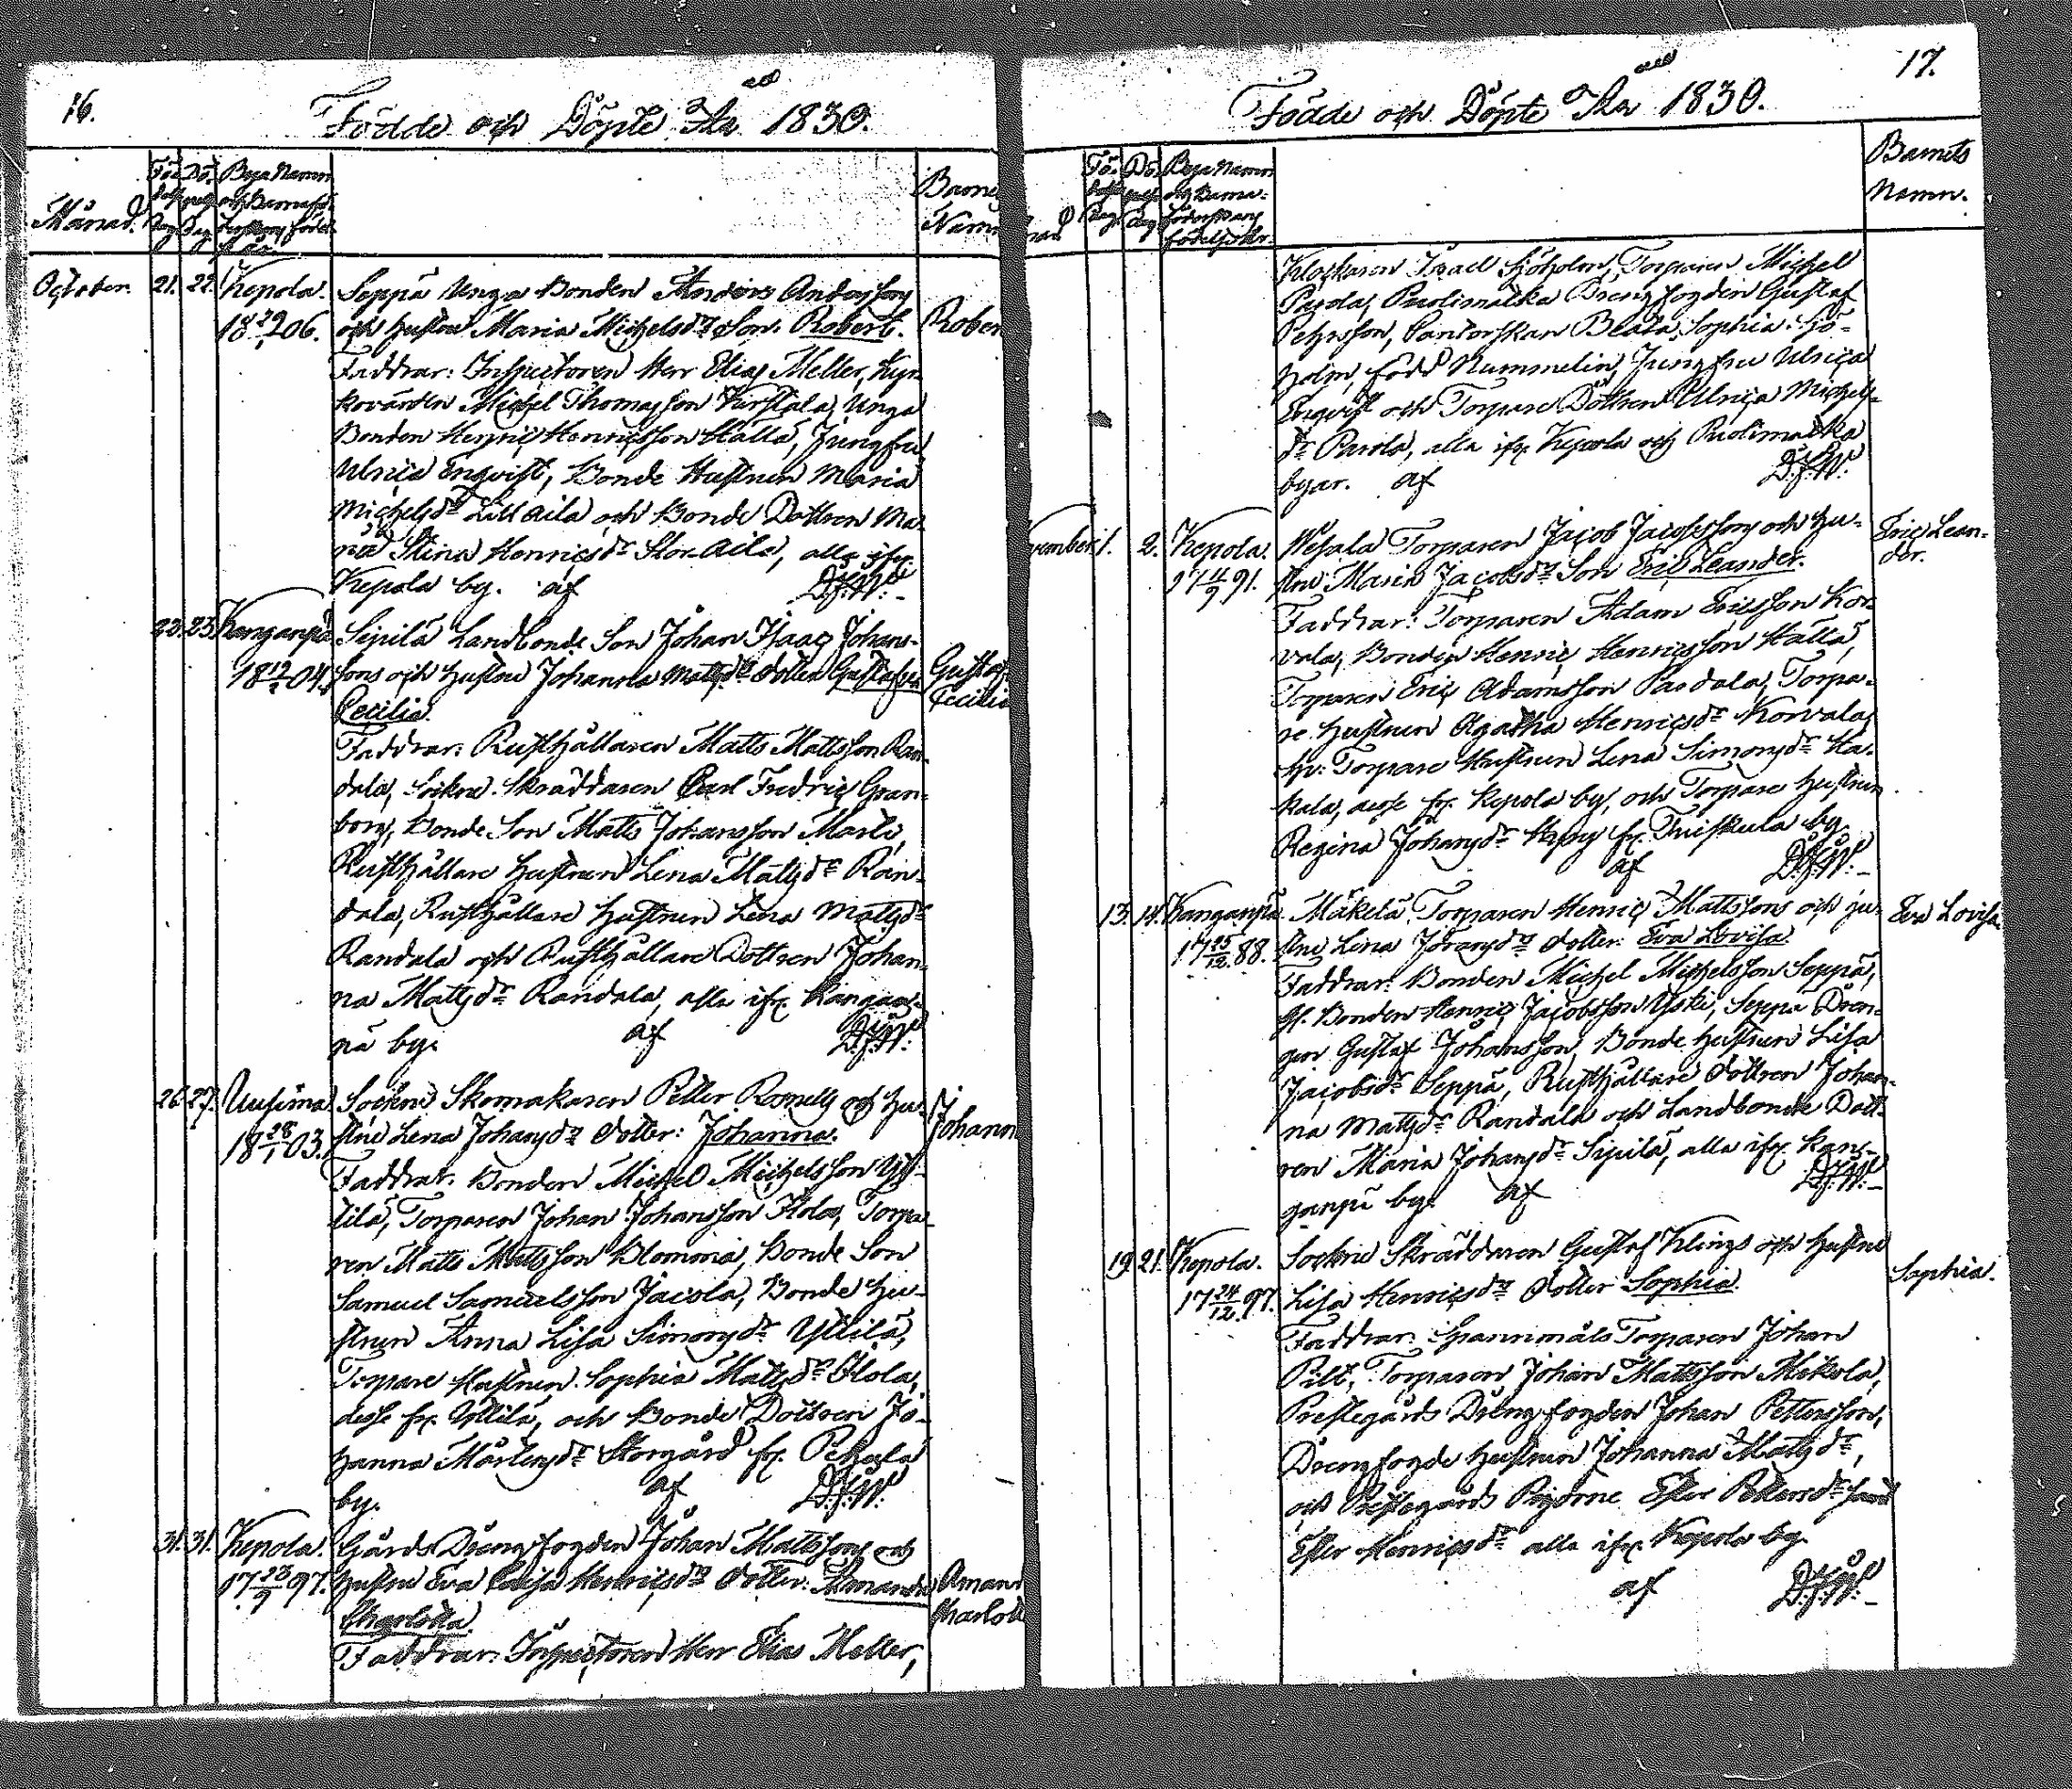 16.
Födde och Döpte År 1830.
Månad.
Barne
Namn
October. 21. 22. Kepola. Seppä Unga Bonden Anders Anderssons
18 206. och hustru Maria Michelsdrs Son: Robert. Rober
Faddrar: Inspectoren Herr Elias Meller, Kyr-
kovärden Michel Thomasson Yurstala, Unga
Bonden Henric Henricsson Hälla, Jungfru
Ulrica Enqvist, Bonde Hustrun Maria
Michelsdr Lill Aila och Bonde Dottren Ma-
ria Stina Henricsdr Stor Aila, alla ifr.
Kepola by. af D.f.W:
22. 23. Kanganpä Sipilä Landbonde Son Johan Isaac Johans-
18 04. sons och hustru Johanna Mattsdrs dotter Gustafva Gustaf
Cecilia. Cecilia
Faddrar: Rusthållaren Matts Mattsson Ran-
dala, Sockne Skräddaren Carl Fredric Gran-
borg, Bonde Son Matts Johansson Martti,
Rusthållare hustrun Lena Mattsdr Ran-
dala, Rusthållare hustrun Lena Mattsdr
Randala och Rusthållare Dottren Johan-
na Mattsdr Randala, alla ifr. Kangan-
pä by. af D.f.W:
26. 27. Uusima Sockne Skomakaren Petter Rosnells och hu-
18 28/1 03. stru Lena Johansdrs dotter: Johanna. Johann
Faddrar: Bonden Michel Michelsson Yt-
tilä, Torparen Johan Johansson Flola, Torpa-
ren Matts Mattsson Blommä, Bonde Son
Samuel Samuelsson Jacola, Bonde Hu-
strun Anna Lisa Simonsdr Yttilä,
Torpare Hustrun Sophia Mattsdr Flola,
desse fr. Yttilä, och Bonde Dottren Jo-
hanna Mårtensdr Storgård fr. Pethola
by. af D.f.W:
31. 31. Kepola. Gårds Drengfogden Johan Mattssons och
17 23/9 97. hustru Eva Caisa Henricsdrs dotter: Amanda Aman
Charlotta. Charlott
Faddrar: Inspectoren Herr Elias Meller,
17.
Födde och Döpte År 1830.
Barnets
Namn.
Klockaren Israel Sjöholm, Torparen Michel
Parola, Puolimatka Drengfogden Gustaf
Pehrsson, Cantorskan Beata Sophia Sjö-
holm, född Nummelin, Jungfru Ulrica
Enqvist och Torpare Dottren Ulrica Michels-
dr Parola, alla ifr. Kepola och Puolimatka
byar. af D.f.W:
vember 1. 2. Kepola. Wesala Torparen Jacob Jacobssons och hu- Eric Lean-
17 11/9 91. stru Maria Jacobsdrs Son Eric Leander. der.
Faddrar: Torparen Adam Ericsson Kor-
vola, Bonden Henric Henricsson Hälla,
Torparen Eric Adamsson Paodala, Torpa-
re hustrun Agatha Henricsdr Korvola,
Torpare Hustrun Lena Simonsdr Ha-
kala, desse fr. Kepola by, och Torpare hustrun
Regina Johansdr fr. Tuiskula by.
af D.f.W:
13. 14. Kanganpä. Mäkelä Torparen Henric Mattssons och hu- Eva Lovisa.
17 25/12 88. stru Lena Johansdrs dotter: Eva Lovisa.
Faddrar: Bonden Michel Michelsson Seppä,
Gl. Bonden Henric Jacobsson Yski, Seppä Dren-
gen Gustaf Johansson, Bonde hustrun Lisa
Jacobsdr Seppä, Rusthållare dottren Johan-
na Mattsdr Randala och Landbonde Dott-
ren Maria Johansdr Sipilä, alla ifr. Kan-
ganpä by. af D.f.W:
19. 21. Kepola. Sockne Skräddaren Gustaf Klings och hustru
17 24/12 97. Lisa Henricsdrs dotter Sophia. Sophia.
Faddrar: Spannmåls Torparen Johan
Pilt, Torparen Johan Mattsson Mikola,
Prestegårds Drengfogden Johan Pettersson,
Drengfogde hustrun Johanna Mattsdr,
och Prestegårds Pigorne Ester Pettersdr samt
Ester Henricsdr alla ifr. Kepola by.
af D.f.W: